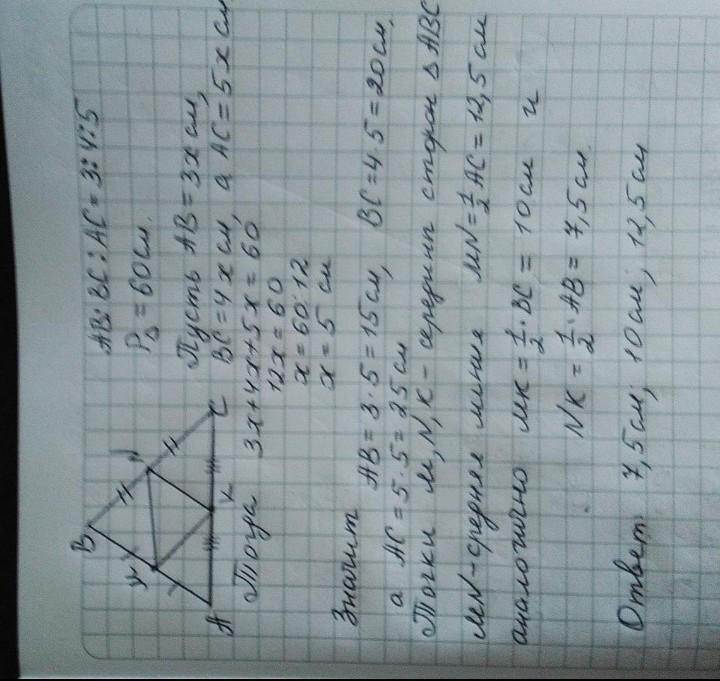 B
M
N
A
K
C
AB:BC:AC = 3:4:5
P△ = 60см.
Пусть AB = 3x см,
BC = 4x см, а AC = 5x см
Тогда 3x+4x+5x = 60
12x = 60
x = 60:12
x = 5 см
Значит AB = 3·5 = 15см, BC = 4·5 = 20см,
а AC = 5·5 = 25см
Точки M, N, K - середины сторон △ABC
MN - средняя линия MN = 1/2 AC = 12,5 см
аналогично MK = 1/2·BC = 10см и
NK = 1/2·AB = 7,5 см.
Ответ 7,5см; 10см; 12,5см